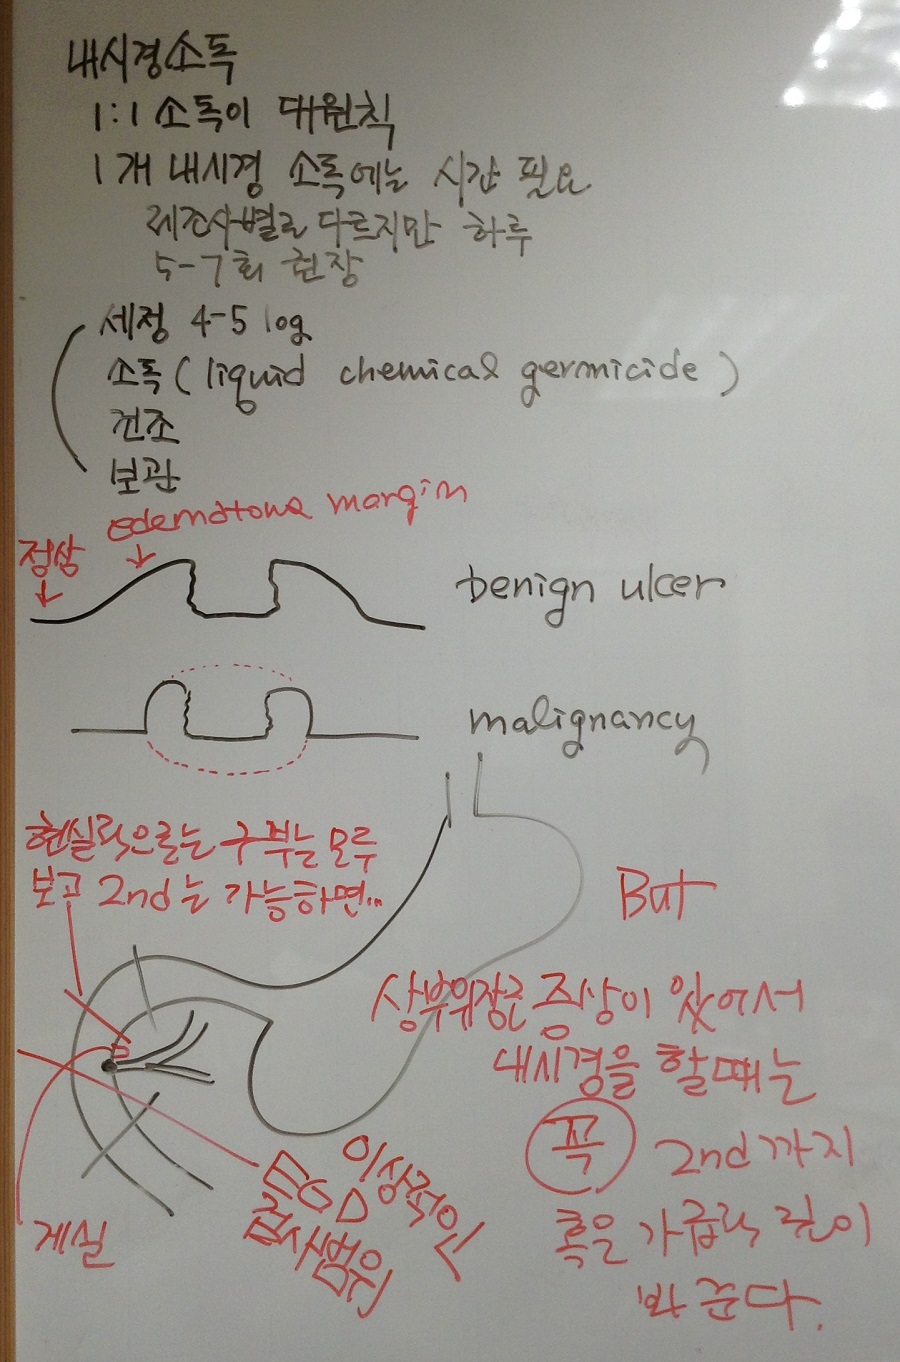 내시경소독
1:1 소독이 대원칙
1개 내시경 소독에는 시간 필요
제조사별로 다르지만 하루
5-7회 권장
세정 4-5 log
소독 (liquid chemical germicide)
건조
보관
edematous margin
정상
benign ulcer
malignancy
현실적으로는 구부는 모두
보고 2nd는 가능하면...
But
상부위장관 증상이 있어서
내시경을 할때는
꼭 2nd까지
혹은 가급적 깊이
봐 준다.
이상적인
EGD
검사범위
게실